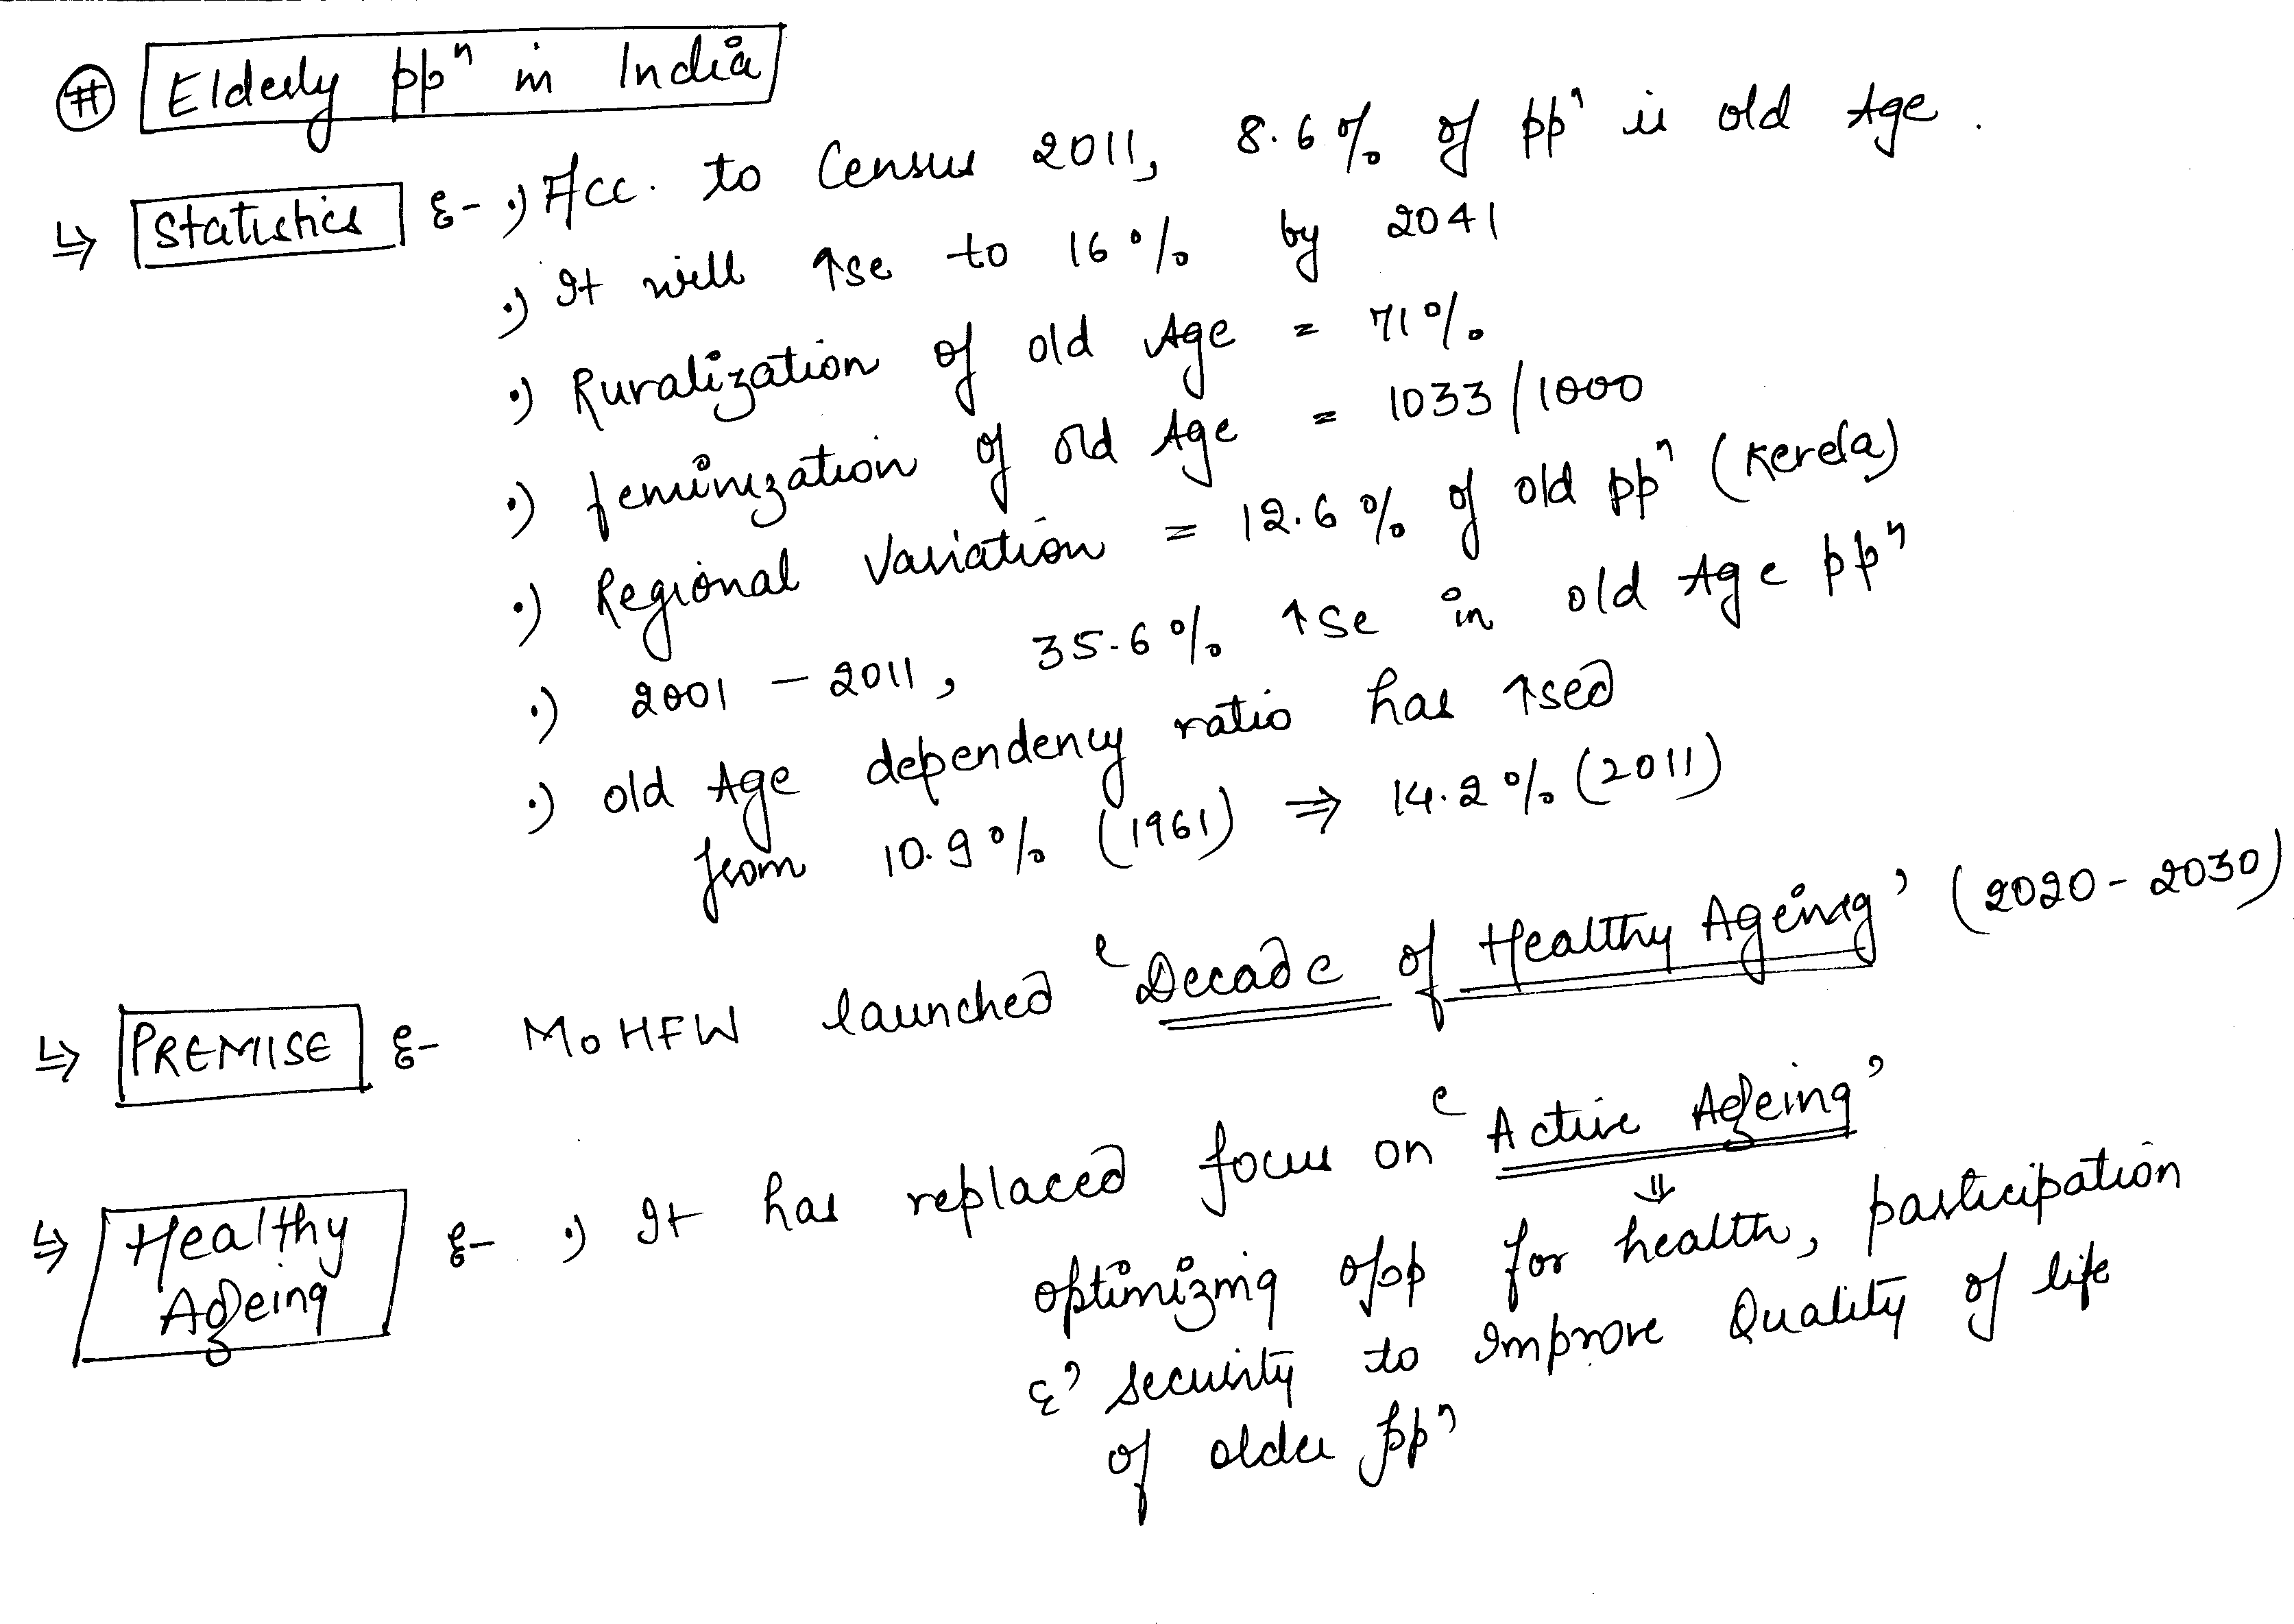 # Elderly ppⁿ in India
↳ Statistics :- •) Acc. to Census 2011, 8.6% of ppⁿ is old Age.
•) It will ↑se to 16% by 2041
•) Ruralization of old Age = 71%
•) feminization of old Age = 1033/1000
•) Regional Variation = 12.6% of old ppⁿ (Kerela)
•) 2001 – 2011, 35.6% ↑se in old Age ppⁿ
•) old Age dependency ratio has ↑sed
from 10.9% (1961) ⇒ 14.2% (2011)
↳ PREMISE :- MoHFW launched 'Decade of Healthy Ageing' (2020-2030)
↳ Healthy Ageing :- •) It has replaced focus on 'Active Ageing'
⇓
optimizing opp for health, participation
& security to Improve Quality of life
of older ppⁿ